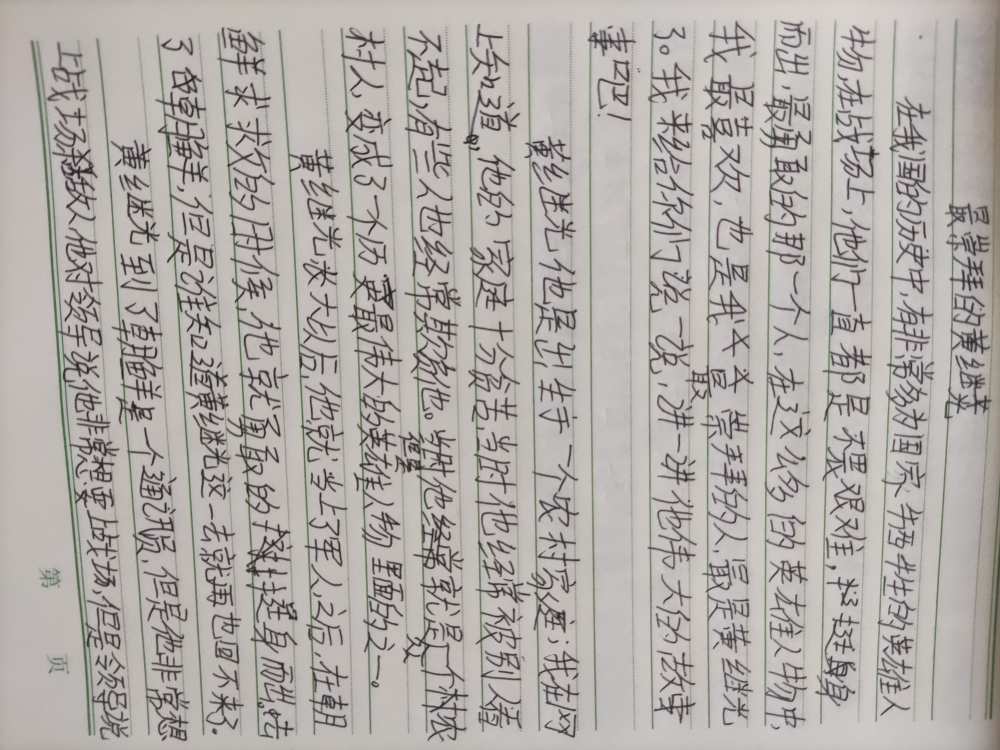 最崇拜的黄继光
在我国的历史中,有非常多为国家牺牲的英雄人
物,在战场上,他们一直都是不畏艰难,挺身
而出,最勇敢的那一个人,在这么多的英雄人物中,
我最喜欢,也是我最崇拜的人,最是黄继光
了。我来给你们说一说,讲一讲他伟大的故事
事吧!
黄继光,他是出生于一个农村家庭;我在网
上知道,他的家庭十分贫苦,当时他经常被别人瞧
不起,有些人也经常欺负他。当时他就是从一个林农
村人,变成了一个历史最伟大的英雄人物里面的之一。
黄继光长大以后,他就当上了军人,之后,在朝
鲜求救的时候,他就勇敢的挺身而出。去
了朝鲜,但是谁知道黄继光这一去就再也回不来了。
黄继光到了朝鲜是一个通讯员,但是他非常想
上战场杀敌人,他对领导说他非常想要上战场,但是领导说
第 页